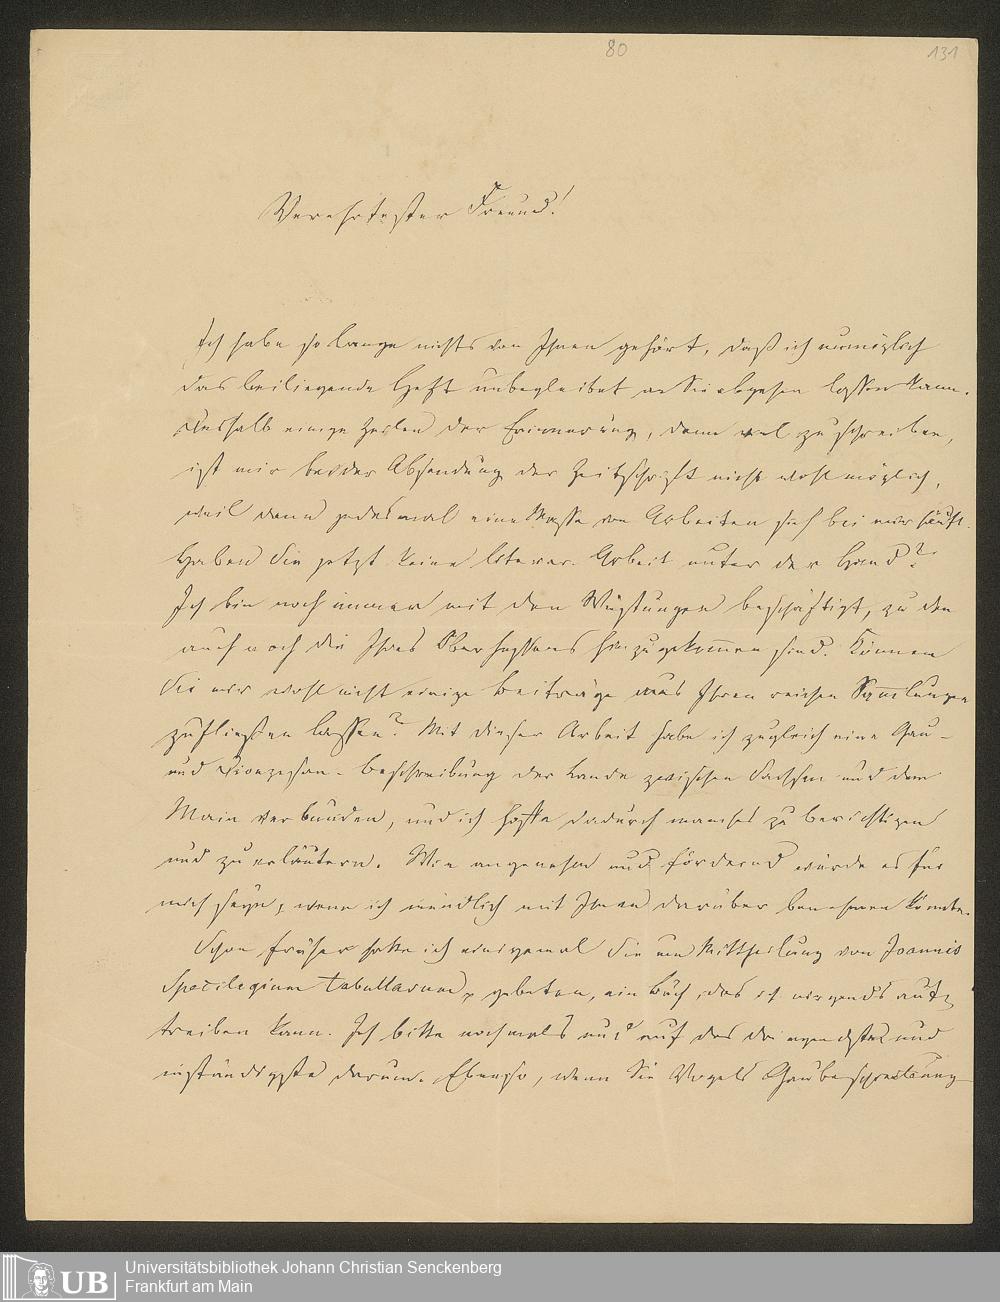 80
131
Verehrtester Freund!
Ich habe so lange nichts von Ihnen gehört, daß ich unmöglich
das beiliegende Heft unbegleitet an Sie abgehen lassen kann.
Deshalb einige Zeilen der Erinnerung, denn viel zu schreiben,
ist mir bei der Absendung der Zeitschrift nicht wohl möglich,
weil dann jedesmal eine Masse von Arbeiten sich bei mir häuft.
Haben Sie jetzt keine literar. Arbeit unter der Hand?
Ich bin noch immer mit den Wüstungen beschäftigt, zu den
auch noch die Ihres Oberhessens hinzugekommen sind. Können
Sie mir wohl nicht einige Beiträge aus Ihren reichen Sammlungen
zufließen lassen? Mit dieser Arbeit habe ich zugleich eine Gau-
und Diozesan-beschreibung der Lande zwischen Sachsen und dem
Main verbunden, und ich hoffe dadurch manches zu berichtigen
und zu erläutern. Wie angenehm und fördernd würde es für
mich seyn, wenn ich mündlich mit Ihnen darüber benehmen könnte.
Schon früher hatte ich einigemal Sie um Mittheilung von Joannis
Specilegium tabullarum, gebeten, ein Buch, das ich nirgends auf-
treiben kann. Ich bitte nochmals und auf das dringendste und
inständigste darum. Ebenso, wenn Sie Vogels Gaubeschreibung
Universitätsbibliothek Johann Christian Senckenberg
Frankfurt am Main
UB